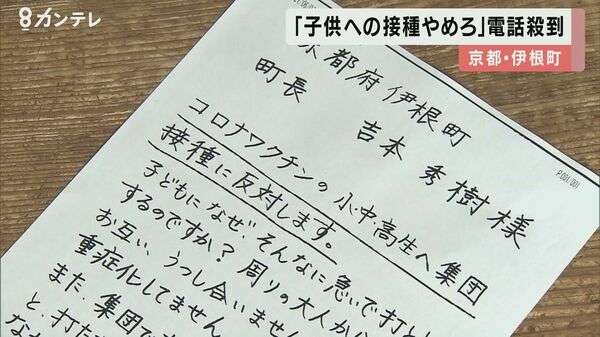 8カンテレ
「子供への接種やめろ」電話殺到
京都・伊根町
京都府伊根町
町長 吉本 秀樹様
コロナワクチンの小中高生へ集団
接種に反対します。
子どもになぜ、そんなに急いで打と
するのですか？周りの大人か
お互い、うつし合いませ
重症化してません
また、集団で
と、打た
なか
P.001/001